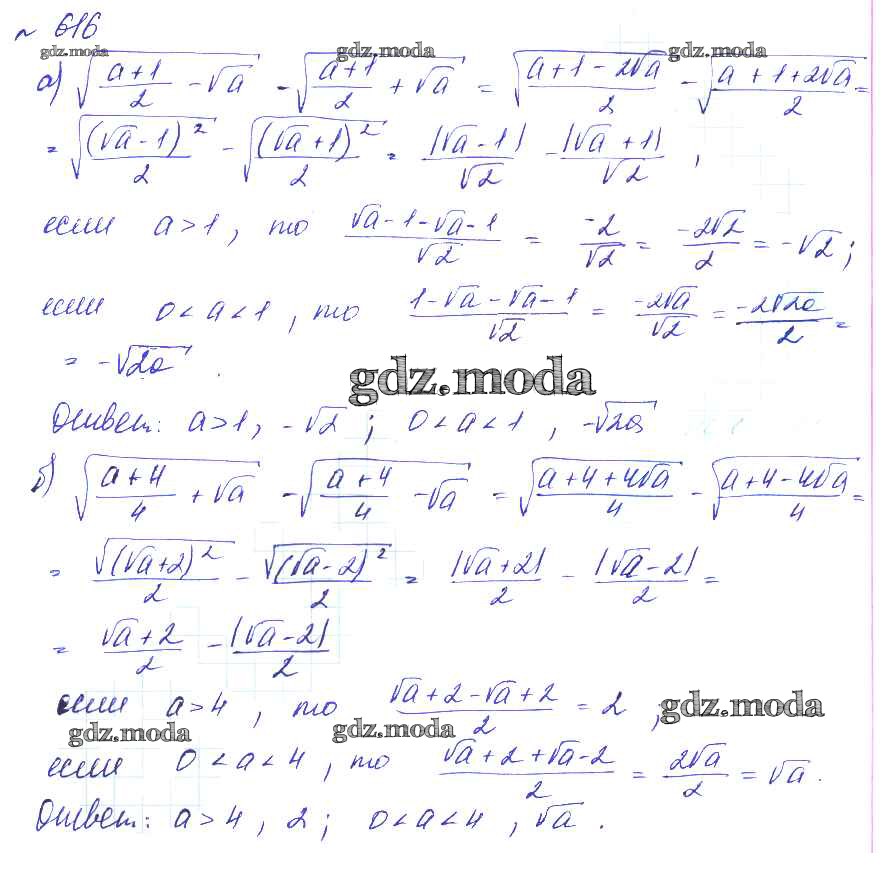 № 616
gdz.moda gdz.moda gdz.moda
а) √((a+1)/2 - √a) - √((a+1)/2 + √a) = √((a+1-2√a)/2) - √((a+1+2√a)/2) =
= √((√a-1)²/2) - √((√a+1)²/2) = |√a-1|/√2 - |√a+1|/√2 ,
если a>1, то (√a-1-√a-1)/√2 = -2/√2 = -2√2/2 = -√2;
если 0<a<1, то (1-√a-√a-1)/√2 = -2√a/√2 = -2√2a/2 =
= -√2a .
gdz.moda
Ответ: a>1, -√2; 0<a<1, -√2a
б) √((a+4)/4 + √a) - √((a+4)/4 - √a) = √((a+4+4√a)/4) - √((a+4-4√a)/4) =
= √(√a+2)²/2 - √(√a-2)²/2 = |√a+2|/2 - |√a-2|/2 =
= (√a+2)/2 - |√a-2|/2
если a>4, то (√a+2-√a+2)/2 = 2,
gdz.moda gdz.moda gdz.moda
если 0<a<4, то (√a+2+√a-2)/2 = 2√a/2 = √a.
Ответ: a>4, 2; 0<a<4, √a.